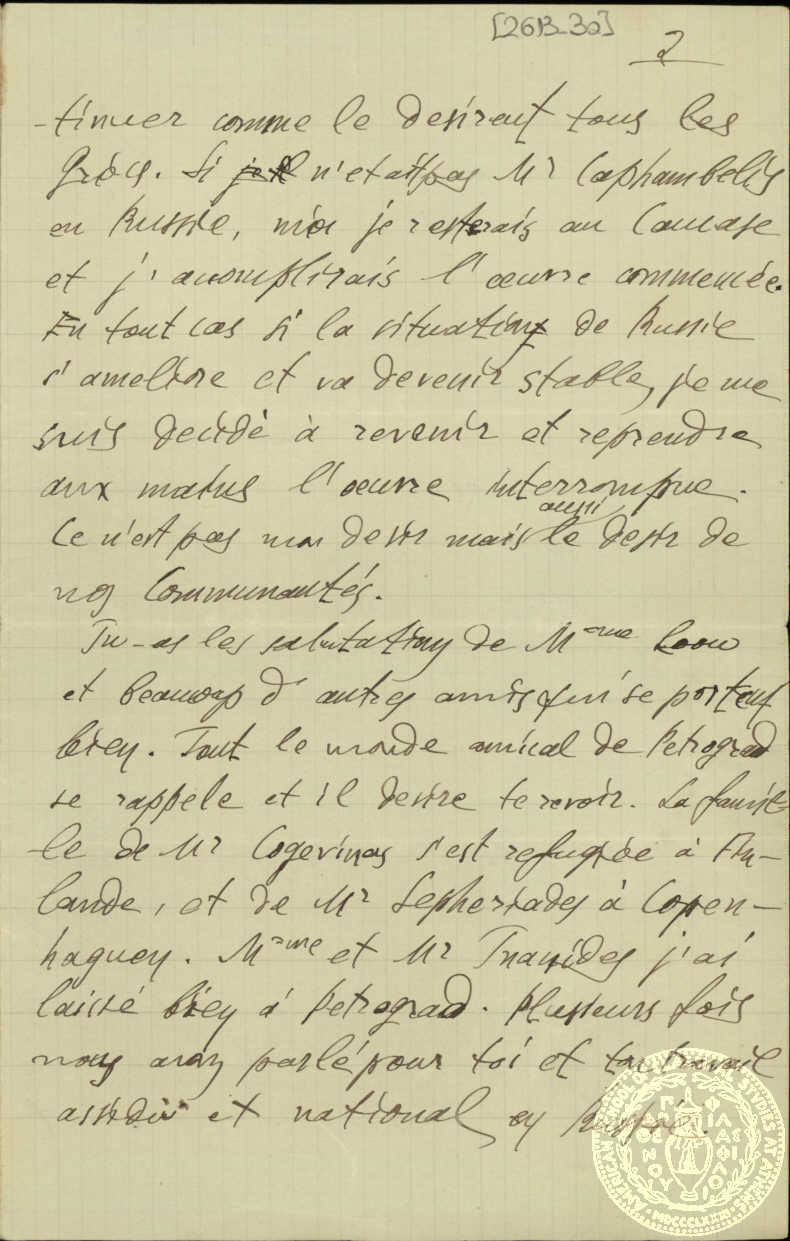 [26B-30]
2
-tinuer comme le desirent tous les
Grècs. Si n'etait pas Mr Caphambelis
en Russie, moi je resterais au Caucase
et j'acomplirais l'œuvre commencée.
En tout cas si la situation de Russie
s'ameliore et va devenir stable, je me
suis decidé à revenir et reprendre
aux mains l'œuvre interrompue.
Ce n'est pas mon desir mais aussi le desir de
nos Communautés.
Tu-as les salutations de Mme
et beaucoup d'autres amis qui se portent
bien. Tout le monde amical de Petrograd
se rappele et il desire te revoir. La famil-
-le de Mr Cogevinas s'est refugiée à Fin-
lande, et de Mr Sepheriades à Copen-
haguen. Mme et Mr j'ai
laissé bien à Petrograd. Plusieurs fois
nous avons parlé pour toi et ton travail
assidu et national en Russie.
AMERICAN SCHOOL OF CLASSICAL STUDIES AT ATHENS
ΠΑΡΘΕΝΟΥ ΦΙΛΑΣ ΦΙΛΟΙ
MDCCCLXXXI